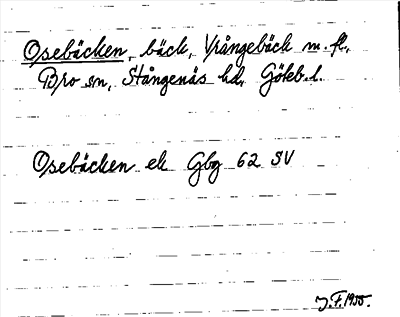 Osebäcken, bäck, Vrångebäck m.fl.
Bro sn, Stångenäs hd, Göteb.l.
Osebäcken ek Gbg 62 SV
J.F. 1955.